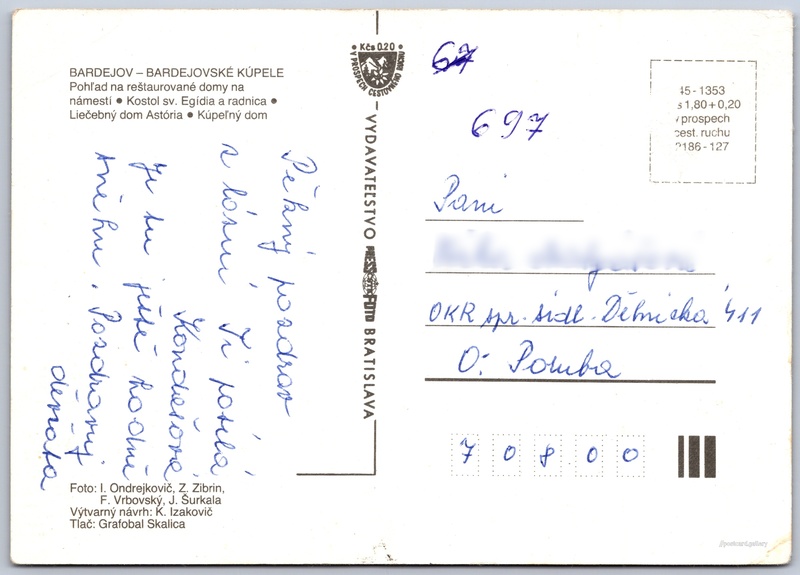 BARDEJOV – BARDEJOVSKÉ KÚPELE
Pohľad na reštaurované domy na
námestí ● Kostol sv. Egídia a radnica ●
Liečebný dom Astória ● Kúpeľný dom
Pěkný pozdrav
z lázní Ti posílá
Kondešová
Je tu ještě hodně
sněhu. Pozdravuj
děvčata
Foto: I. Ondrejkovič, Z. Zibrin,
F. Vrbovský, J. Šurkala
Výtvarný návrh: K. Izakovič
Tlač: Grafobal Skalica
Kčs 0.20
V PROSPECH CESTOVNÉHO RUCHU
VYDAVATEĽSTVO
BRATISLAVA
67
697
45 - 1353
s 1,80 + 0,20
v prospech
cest. ruchu
2186 - 127
Paní
OKR spr. sídl. Dělnická 411
O: Poruba
70800